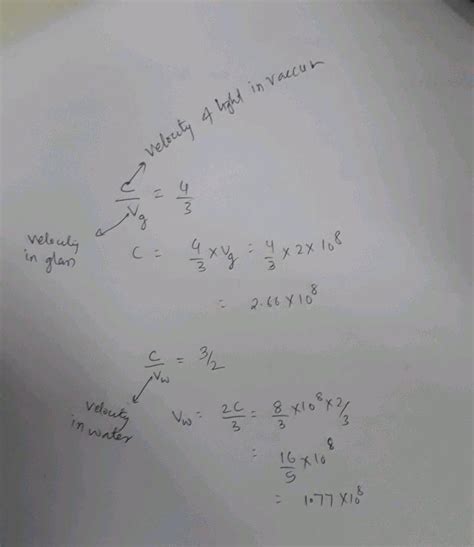 velocity of light in vaccum
C/Vg = 4/3
velocity
in glass
C = 4/3 × Vg = 4/3 × 2 × 10^8
= 2.66 × 10^8
C/Vw = 3/2
velocity
in water
Vw = 2C/3 = 8/3 × 10^8 × 2/3
= 16/9 × 10^8
= 1.77 × 10^8